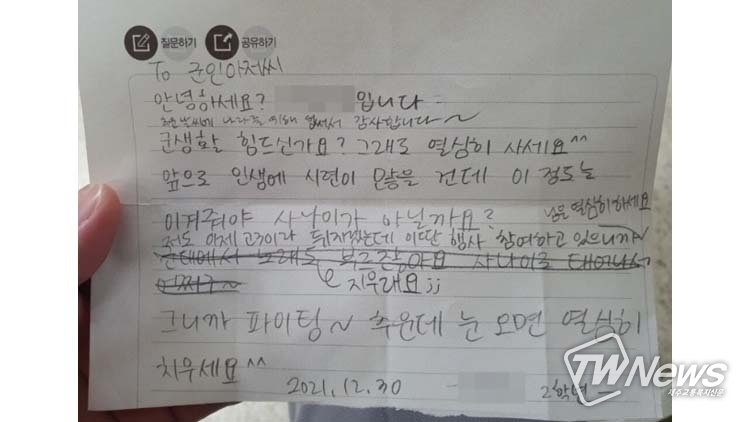 질문하기 공유하기
To 군인아저씨
안녕하세요? 입니다
추운 날씨에 나라를 위해 힘써서 감사합니다~
군생활 힘드신가요? 그래도 열심히 사세요^^
앞으로 인생에 시련이 많을 건데 이 정도는
이겨줘야 사나이가 아닐까요?
님은 열심히하세요
저도 이제 고3이라 뒤지겠는데 이딴 행사 참여하고 있으니까~
군대에서 노래도 부르잖아요 사나이로 태어나서
어쩌구~
지우래요;;
그니까 파이팅~ 추운데 눈 오면 열심히
치우세요^^
2021.12.30 2학년
TWNews
제주교통복지신문